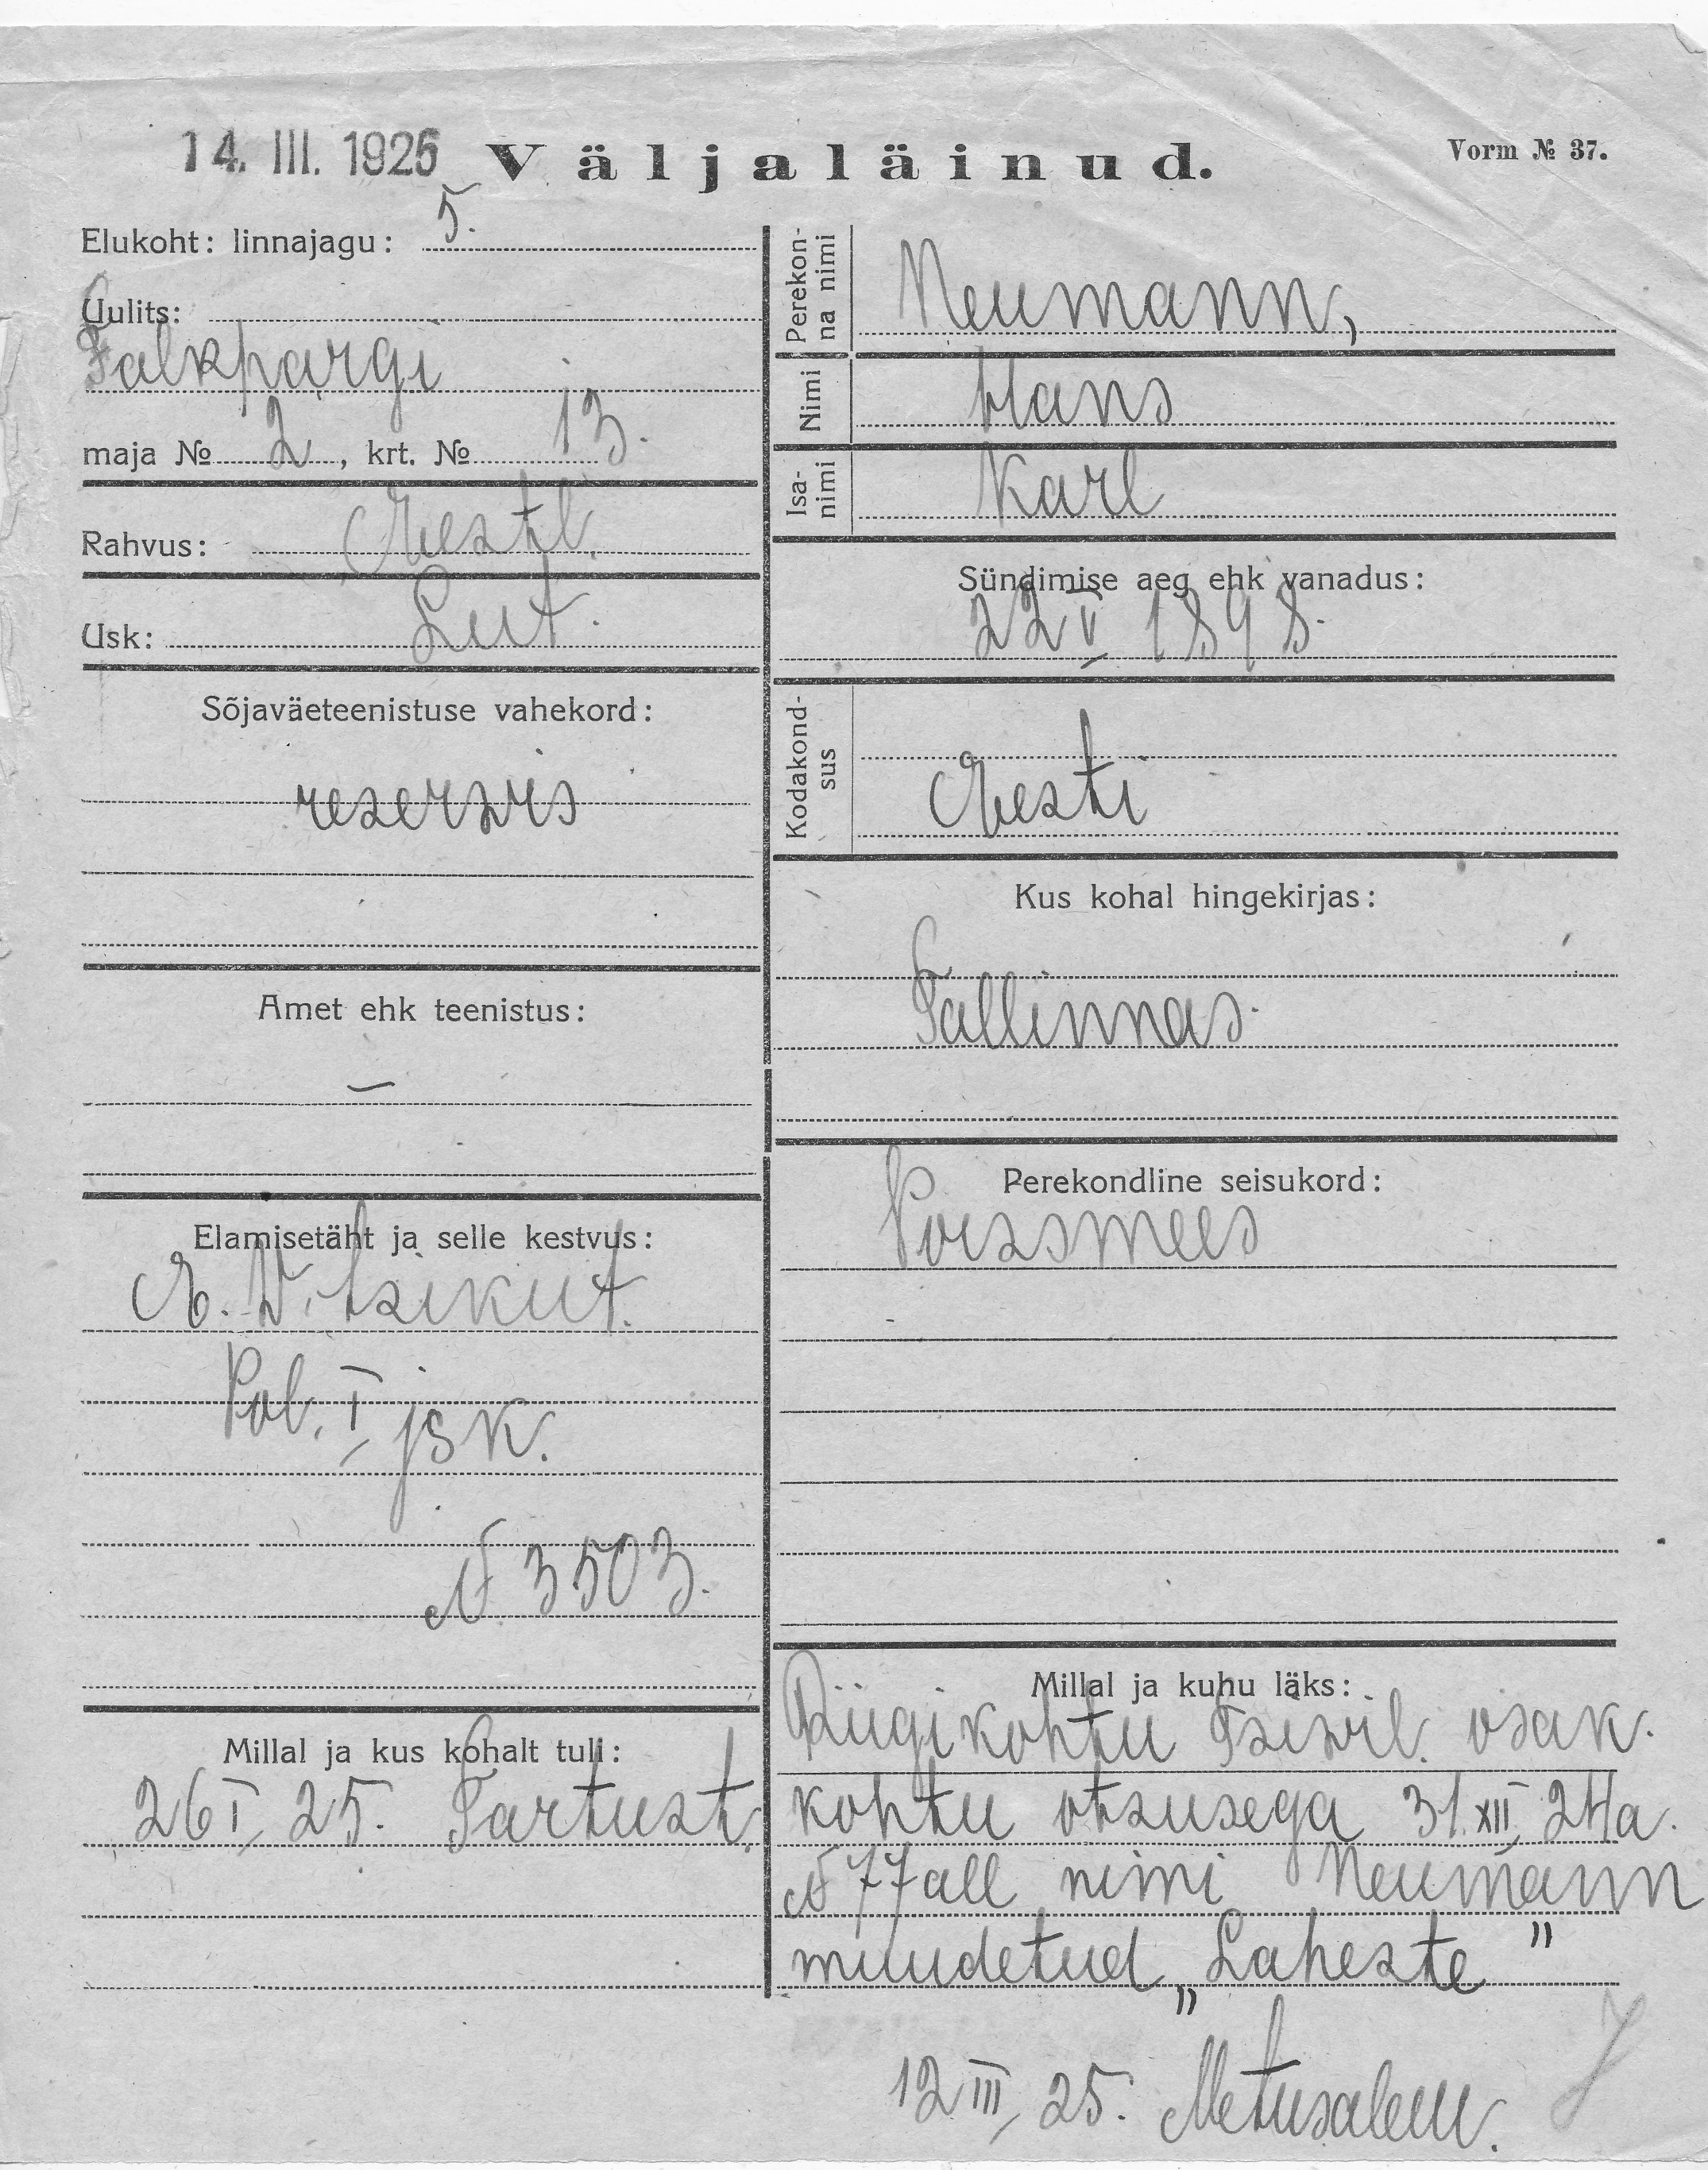 14. III. 1925
Väljaläinud.
Vorm № 37.
Elukoht: linnajagu: 5.
Uulits:
Falkpargi
maja № 2, krt. № 13.
Rahvus: Eestl.
Usk: Lut.
Sõjaväeteenistuse vahekord:
reserwis
Amet ehk teenistus:
—
Elamisetäht ja selle kestvus:
E. W. Isikut.
Pol. I jsk.
№ 3503.
Millal ja kus kohalt tuli:
26 I 25. Tartust.
Perekonna nimi
Neumann,
Nimi
Hans
Isanimi
Karl
Sündimise aeg ehk vanadus:
22 V 1898.
Kodakondsus
Eesti
Kus kohal hingekirjas:
Tallinnas.
Perekondline seisukord:
Poissmees
Millal ja kuhu läks:
Riigikohtu Tsiwil. osak.
kohtu otsusega 31 XII 24a.
№ 77 all nimi Neumann
muudetud „Laheste"
12 III 25. Metusalem.